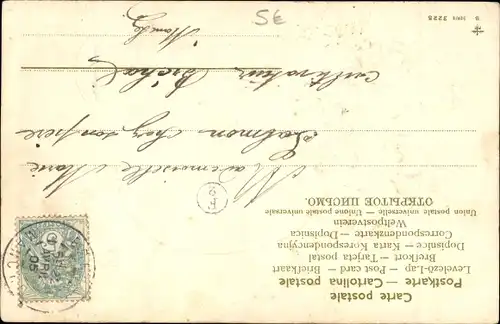 Carte postale
Postkarte — Cartolina postale
Levelező-Lap — Post card — Briefkaart
Brefkort — Tarjeta postal
Dopisnice — Karta Korespondencyjna
Correspondenzkarte — Dopisnica
Weltpostverein
Union postale universelle — Unione postale universale
ОТКРЫТОЕ ПИСЬМО.
Mademoiselle Marie
Salmon chez son père
cultivateur
Manche
5€
3225